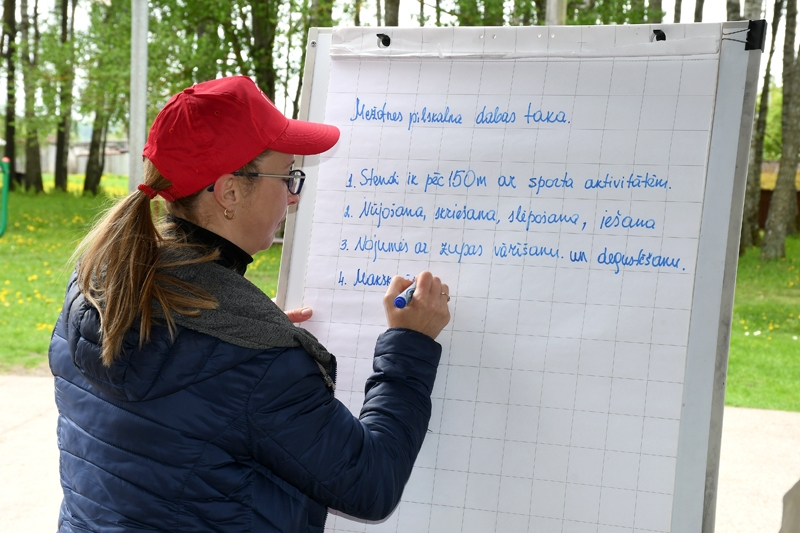 Mežotnes pilskalna dabas taka.
1. Stendi ik pēc 150m ar sporta aktivitātēm.
2. Nūjošana, skriešana, slēpošana, iešana
3. Nojumes ar zupas vārīšanu un degustēšanu.
4. Maksk